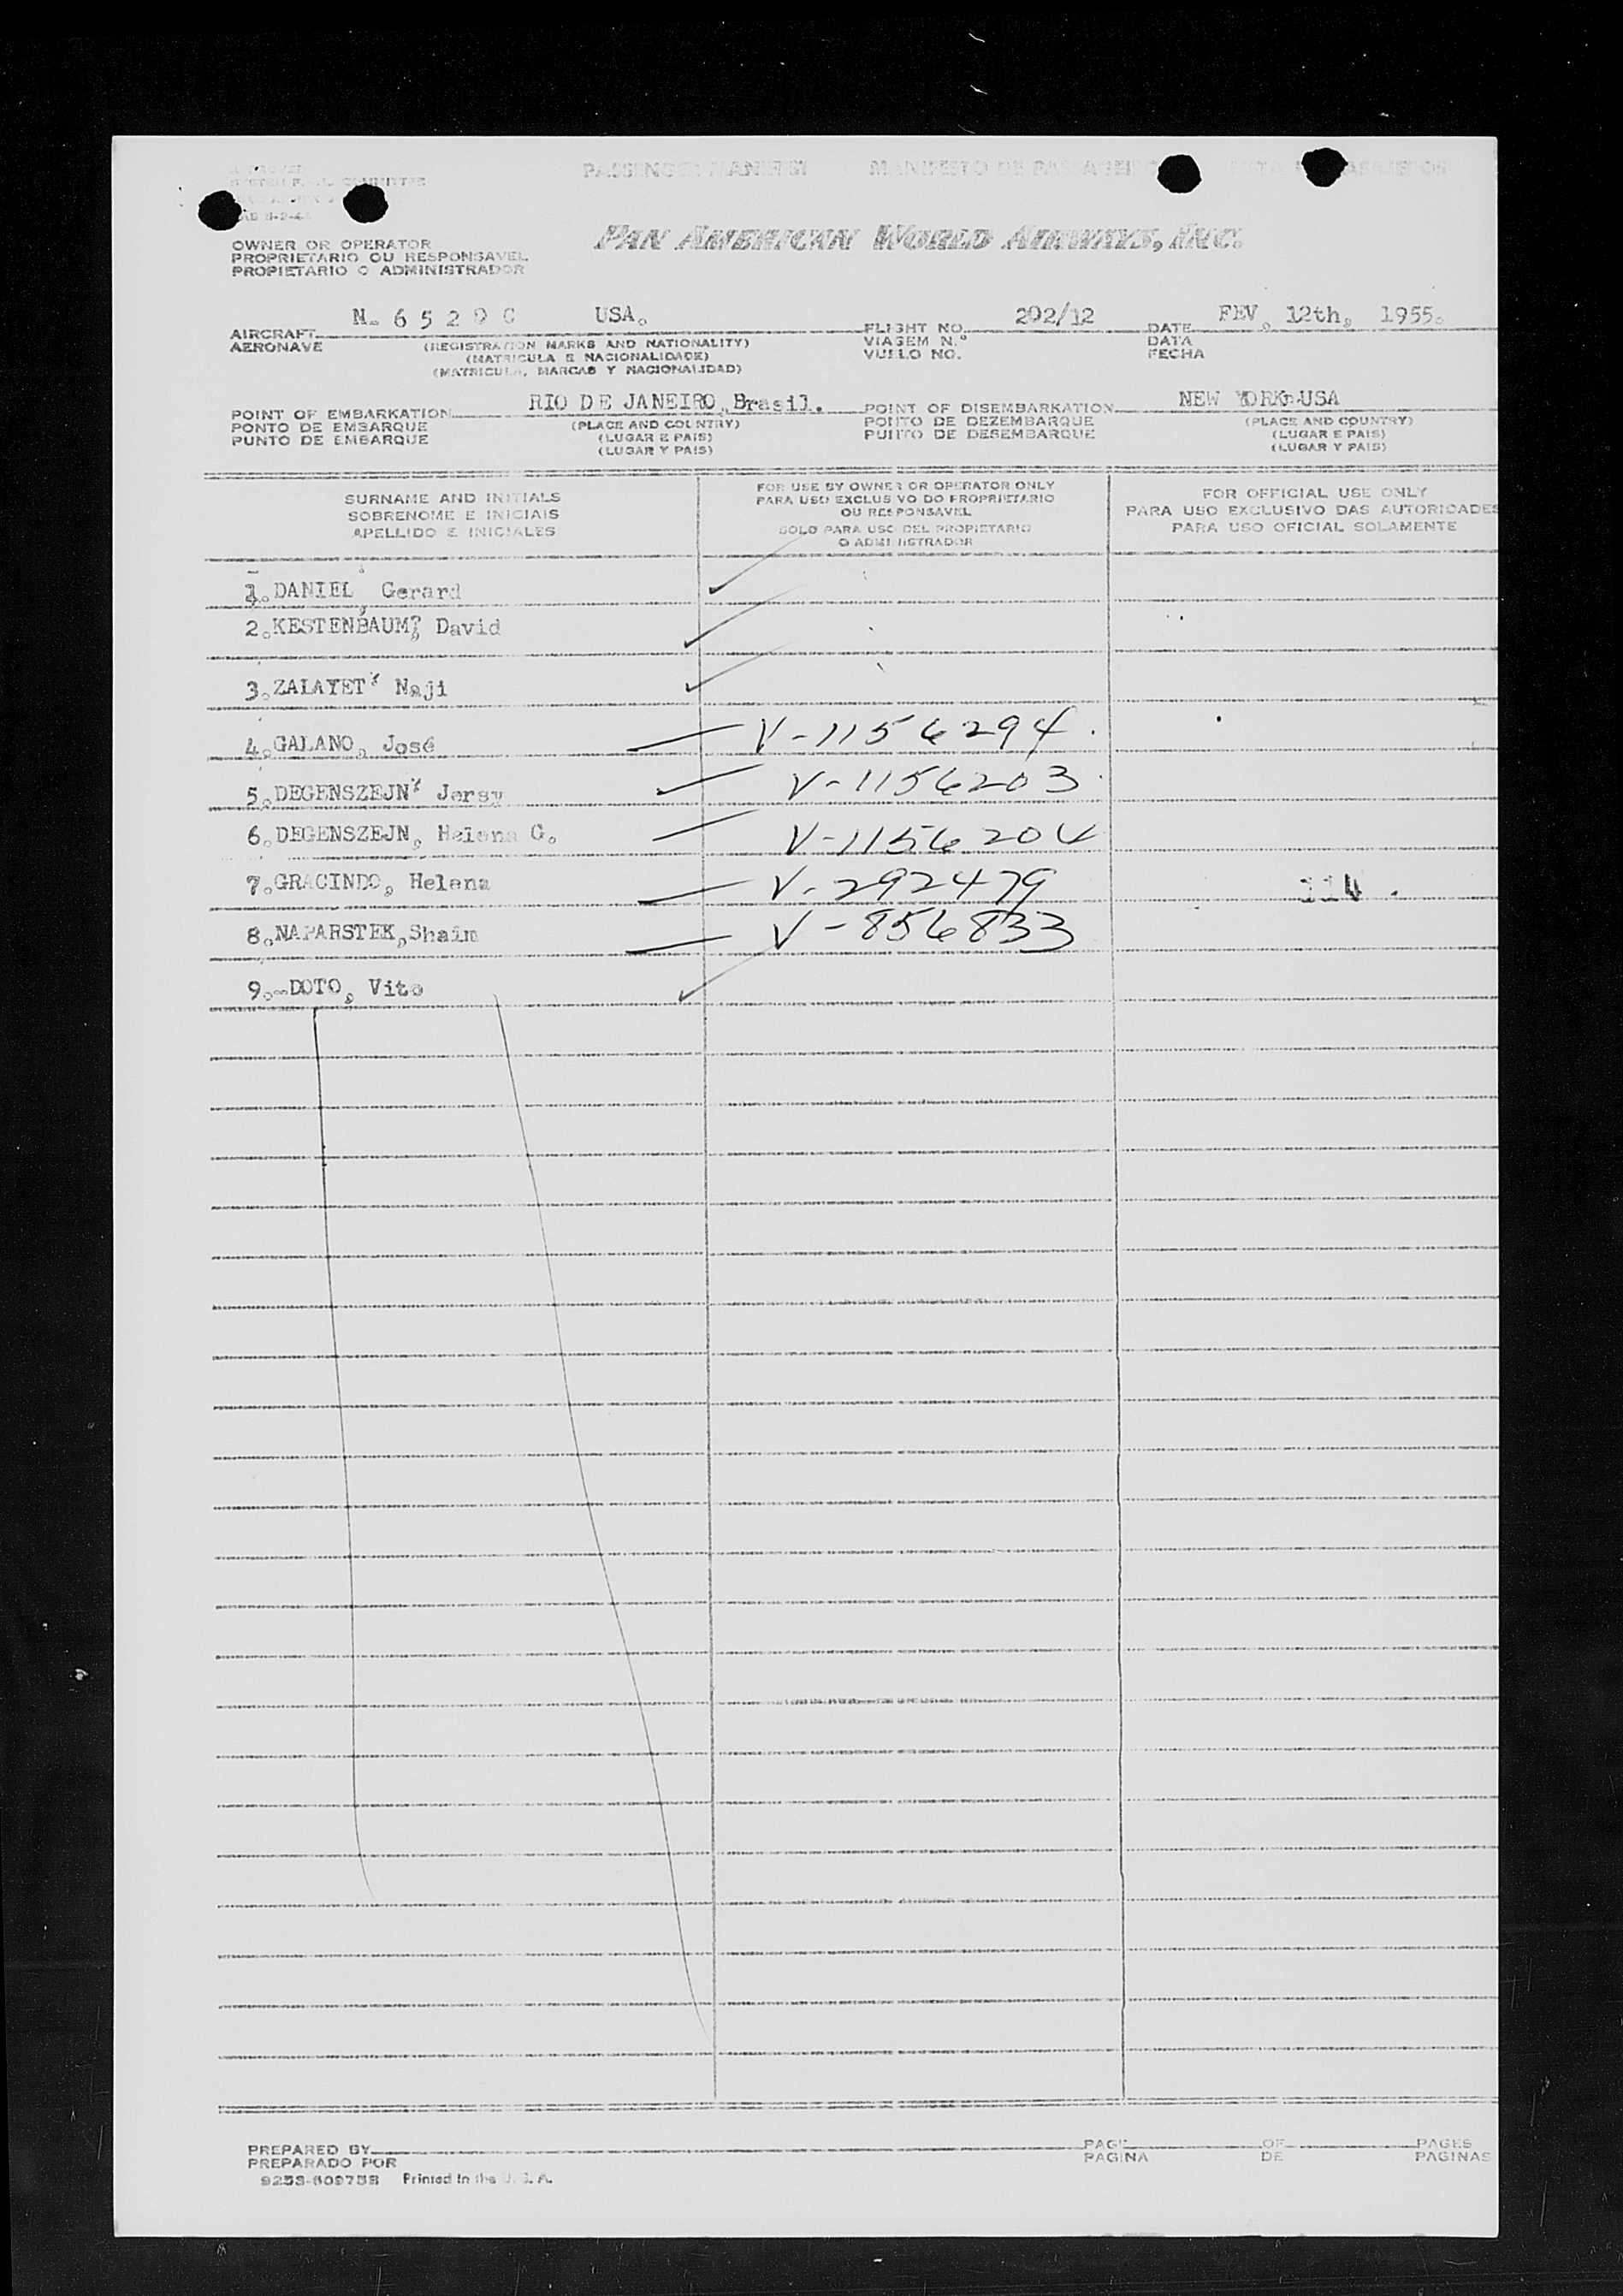 PASSENGER MANIFEST MANIFESTO DE PASSAGEIROS
COMMITTEE
PAN AMERICAN WORLD AIRWAYS, INC.
OWNER OR OPERATOR
PROPRIETARIO OU RESPONSAVEL
PROPIETARIO O ADMINISTRADOR
AIRCRAFT N. 6 5 2 9 C USA. FLIGHT NO. 202/12 DATE FEV, 12th, 1955.
AERONAVE (REGISTRATION MARKS AND NATIONALITY) VIAGEM N.º DATA
(MATRICULA E NACIONALIDADE) VUELO NO. FECHA
(MATRICULA, MARCAS Y NACIONALIDAD)
POINT OF EMBARKATION RIO DE JANEIRO, Brasil. POINT OF DISEMBARKATION NEW YORK-USA
PONTO DE EMBARQUE (PLACE AND COUNTRY) PONTO DE DEZEMBARQUE (PLACE AND COUNTRY)
PUNTO DE EMBARQUE (LUGAR E PAIS) PUNTO DE DESEMBARQUE (LUGAR E PAIS)
(LUGAR Y PAIS) (LUGAR Y PAIS)
SURNAME AND INITIALS
SOBRENOME E INICIAIS
APELLIDO E INICIALES
FOR USE BY OWNER OR OPERATOR ONLY
PARA USO EXCLUSIVO DO PROPRIETARIO
OU RESPONSAVEL
SOLO PARA USO DEL PROPIETARIO
O ADMINISTRADOR
FOR OFFICIAL USE ONLY
PARA USO EXCLUSIVO DAS AUTORIDADES
PARA USO OFICIAL SOLAMENTE
1. DANIEL, Gerard
2. KESTENBAUM, David
3. ZALAYET, Naji
4. GALANO, José V-1156294.
5. DEGENSZEJN, Jersy V-1156203.
6. DEGENSZEJN, Helena G. V-1156204
7. GRACINDO, Helena V-292479 114.
8. NAPARSTEK, Shaim V-856833
9.-DOTO, Vito
PREPARED BY PAGE OF PAGES
PREPARADO POR PAGINA DE PAGINAS
9253-609758 Printed in the U.S.A.